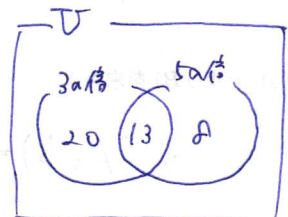 U
3の倍 5の倍
20 13 8